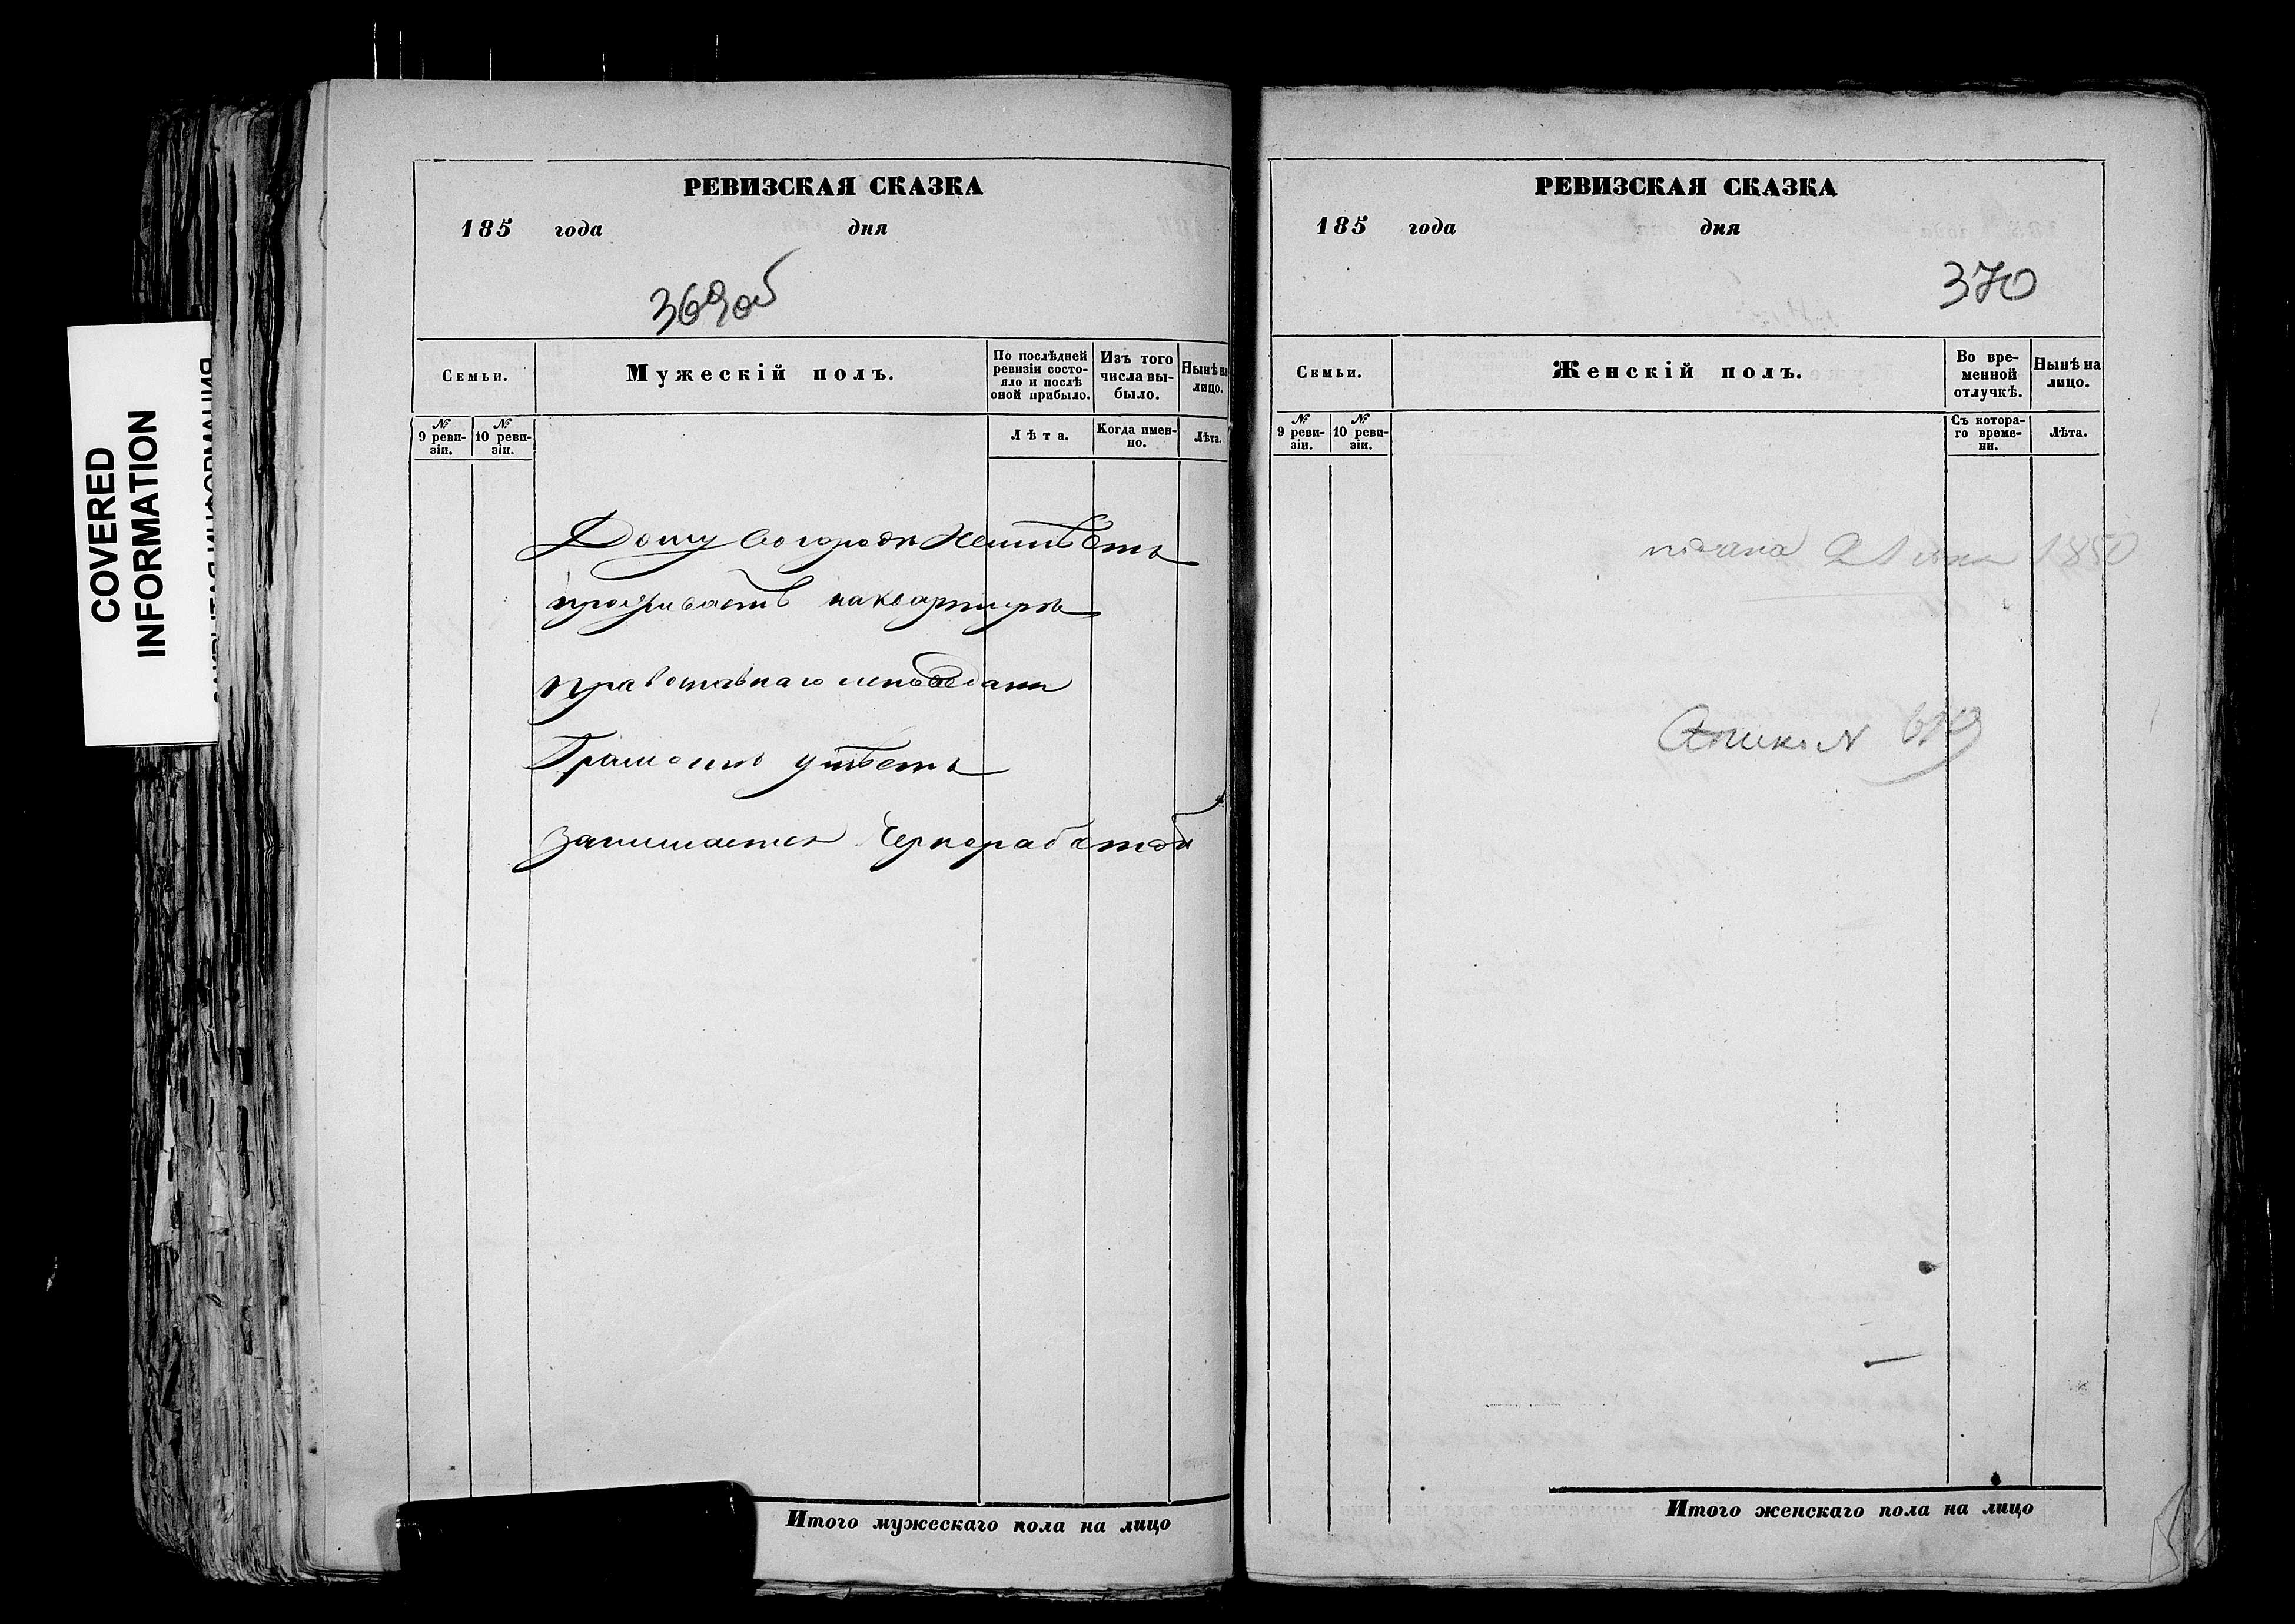 COVERED
INFORMATION
РЕВИЗСКАЯ СКАЗКА
185 года дня
369об
Семьи.
Мужескій полъ.
По послѣдней ревизіи состо-
яло и послѣ оной прибыло.
Изъ того числа вы-
было.
Нынѣ на лицо.
№ 9 реви-
зіи.
№ 10 реви-
зіи.
Лѣта.
Когда имен-
но.
Лѣта.
Дому въ городѣ Неимѣетъ
проживаетъ на квартирѣ
православнаго исповѣдани
Грамотѣ умѣетъ
занимается Чернорабатой
Итого мужескаго пола на лицо
РЕВИЗСКАЯ СКАЗКА
185 года дня
370
Семьи.
Женскій полъ.
Во вре-
менной
отлучкѣ.
Нынѣ на
лицо.
№ 9 реви-
зіи.
№ 10 реви-
зіи.
Съ котора-
го време-
ни.
Лѣта.
21 1850
№
Итого женскаго пола на лицо